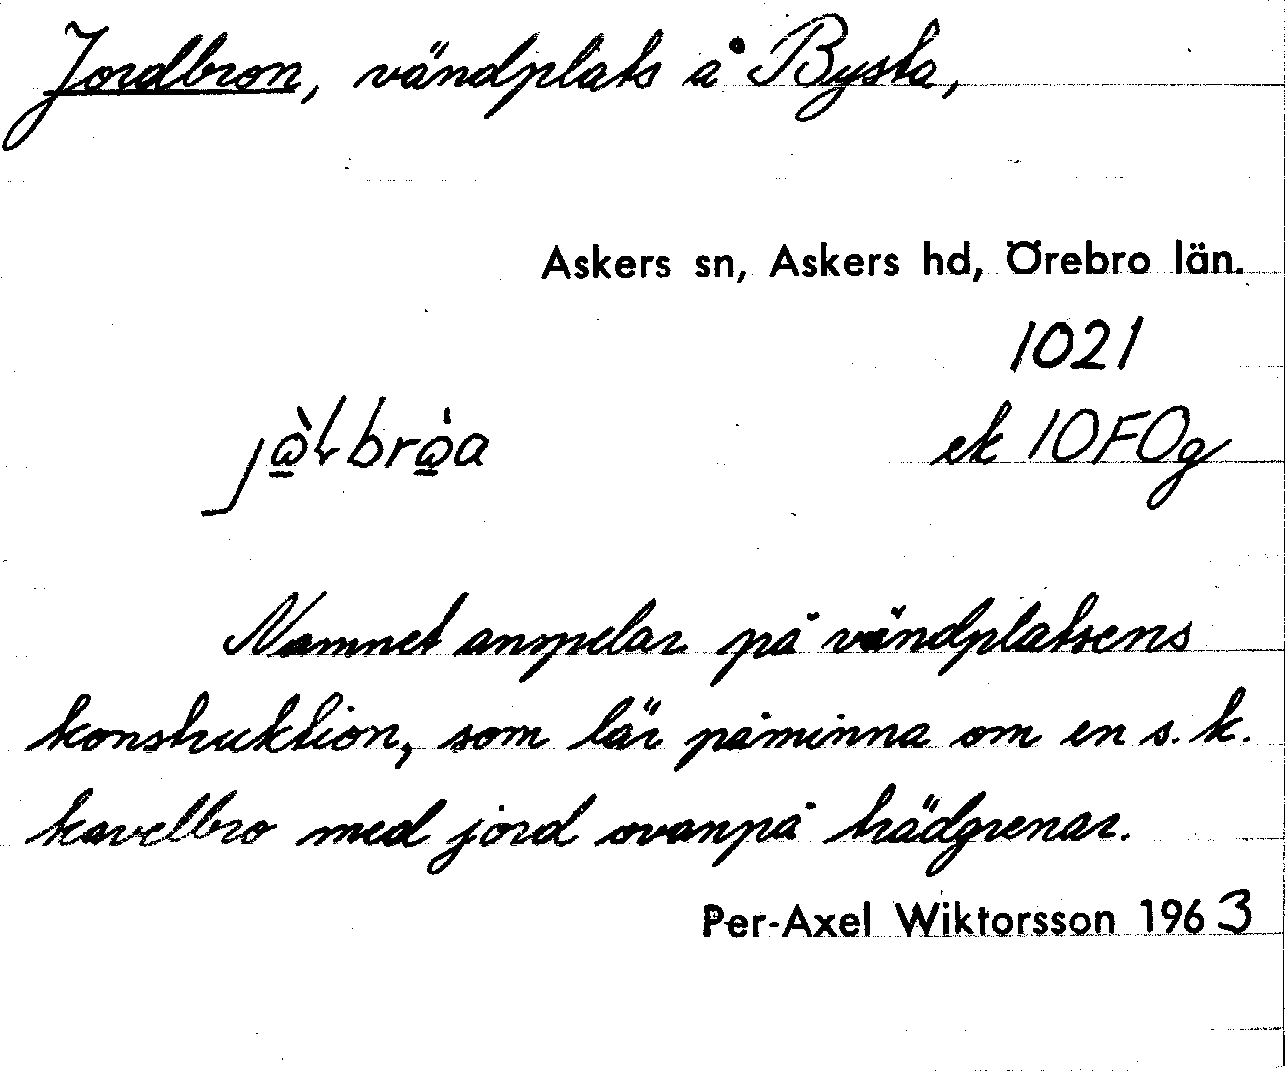 Jordbron, vändplats å Bysta,
Askers sn, Askers hd, Örebro län.
1021
ek 10F0g
Namnet anspelar på vändplatsens
konstruktion, som lär påminna om en s.k.
kavelbro med jord ovanpå trädgrenar.
Per-Axel Wiktorsson 1963